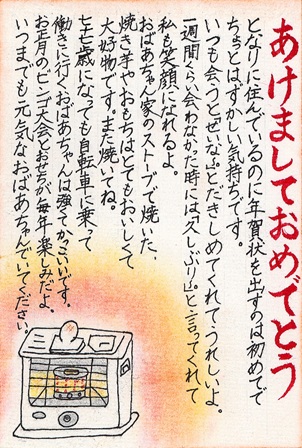 あけましておめでとう
となりに住んでいるのに年賀状を出すのは初めてで
ちょとはずかしい気持ちです。
いつも会うと「せいな」とだきしめてくれてうれしいよ。
一週間くらい会わなかった時には「久しぶり」。と言ってくれて
私も笑顔になれるよ。
おばあちゃん家のストーブで焼いた、
焼き芋やおもちはとてもおいしくて
大好物です。また焼いてね。
七十七歳になっても自転車に乗って
働きに行くおばあちゃんは強くてかっこいいです。
お正月のビンゴ大会とおもちが毎年楽しみだよ、
いつまでも元気なおばあちゃんでいてください。